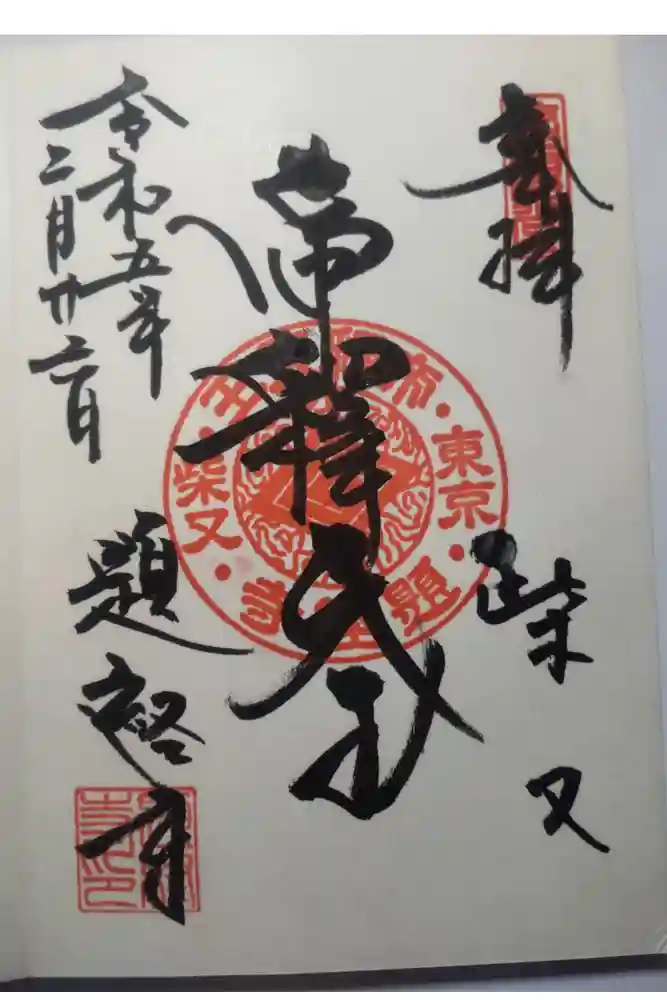 奉拝
柴又
帝釋天王
令和五年
二月廿六日
題経寺
東京
柴又
題経寺